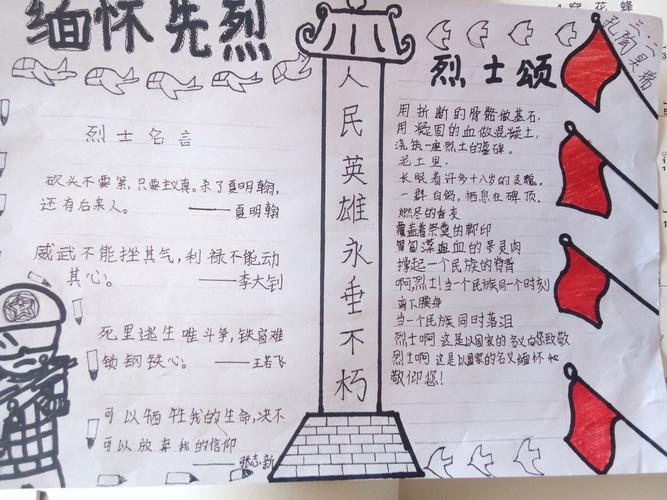 缅怀先烈
烈士名言
砍头不要紧,只要主义真。杀了夏明翰,
还有后来人。——夏明翰
威武不能挫其气,利禄不能动
其心。——李大钊
死里逃生唯斗争,铁窗难
锁钢铁心。——王若飞
可以牺牲我的生命,决不
可以放弃我的信仰
——张志新
人民英雄永垂不朽
烈士颂
用折断的骨骼做基石,
用凝固的血做混凝土,
浇筑一座烈士的墓碑。
泥土里,
长眠着许多十八岁的灵魂。
一群白鸽,栖息在碑顶,
燃尽的香灰
覆盖着祭奠的脚印
血的灵肉
撑起一个民族的脊背
啊,烈士!当一个民族同一个时刻
弯下腰身
当一个民族同时落泪
烈士啊 这是以国家的名义向您致敬
烈士啊 这是以国家的名义缅怀和
敬仰您!
三